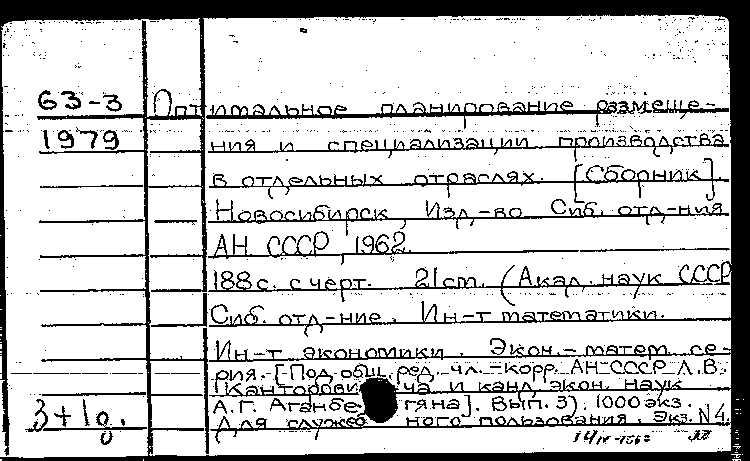 63-3 Оптимальное планирование размеще-
1979 ния и специализации производства
в отдельных отраслях. [Сборник].
Новосибирск, Изд.-во Сиб. отд-ния
АН СССР, 1962.
188 с. с черт. 21 cm. (Акад. наук СССР
Сиб. отд-ние. Ин-т математики.
Ин-т экономики. Экон.-матем. се-
рия. [Под общ. ред. чл.-корр. АН СССР Л.В.
Канторовича и канд. экон. наук
3+1д. А.Г. Аганбегяна]. Вып. 3). 1000 экз.
Для служебного пользования. Экз. N4.